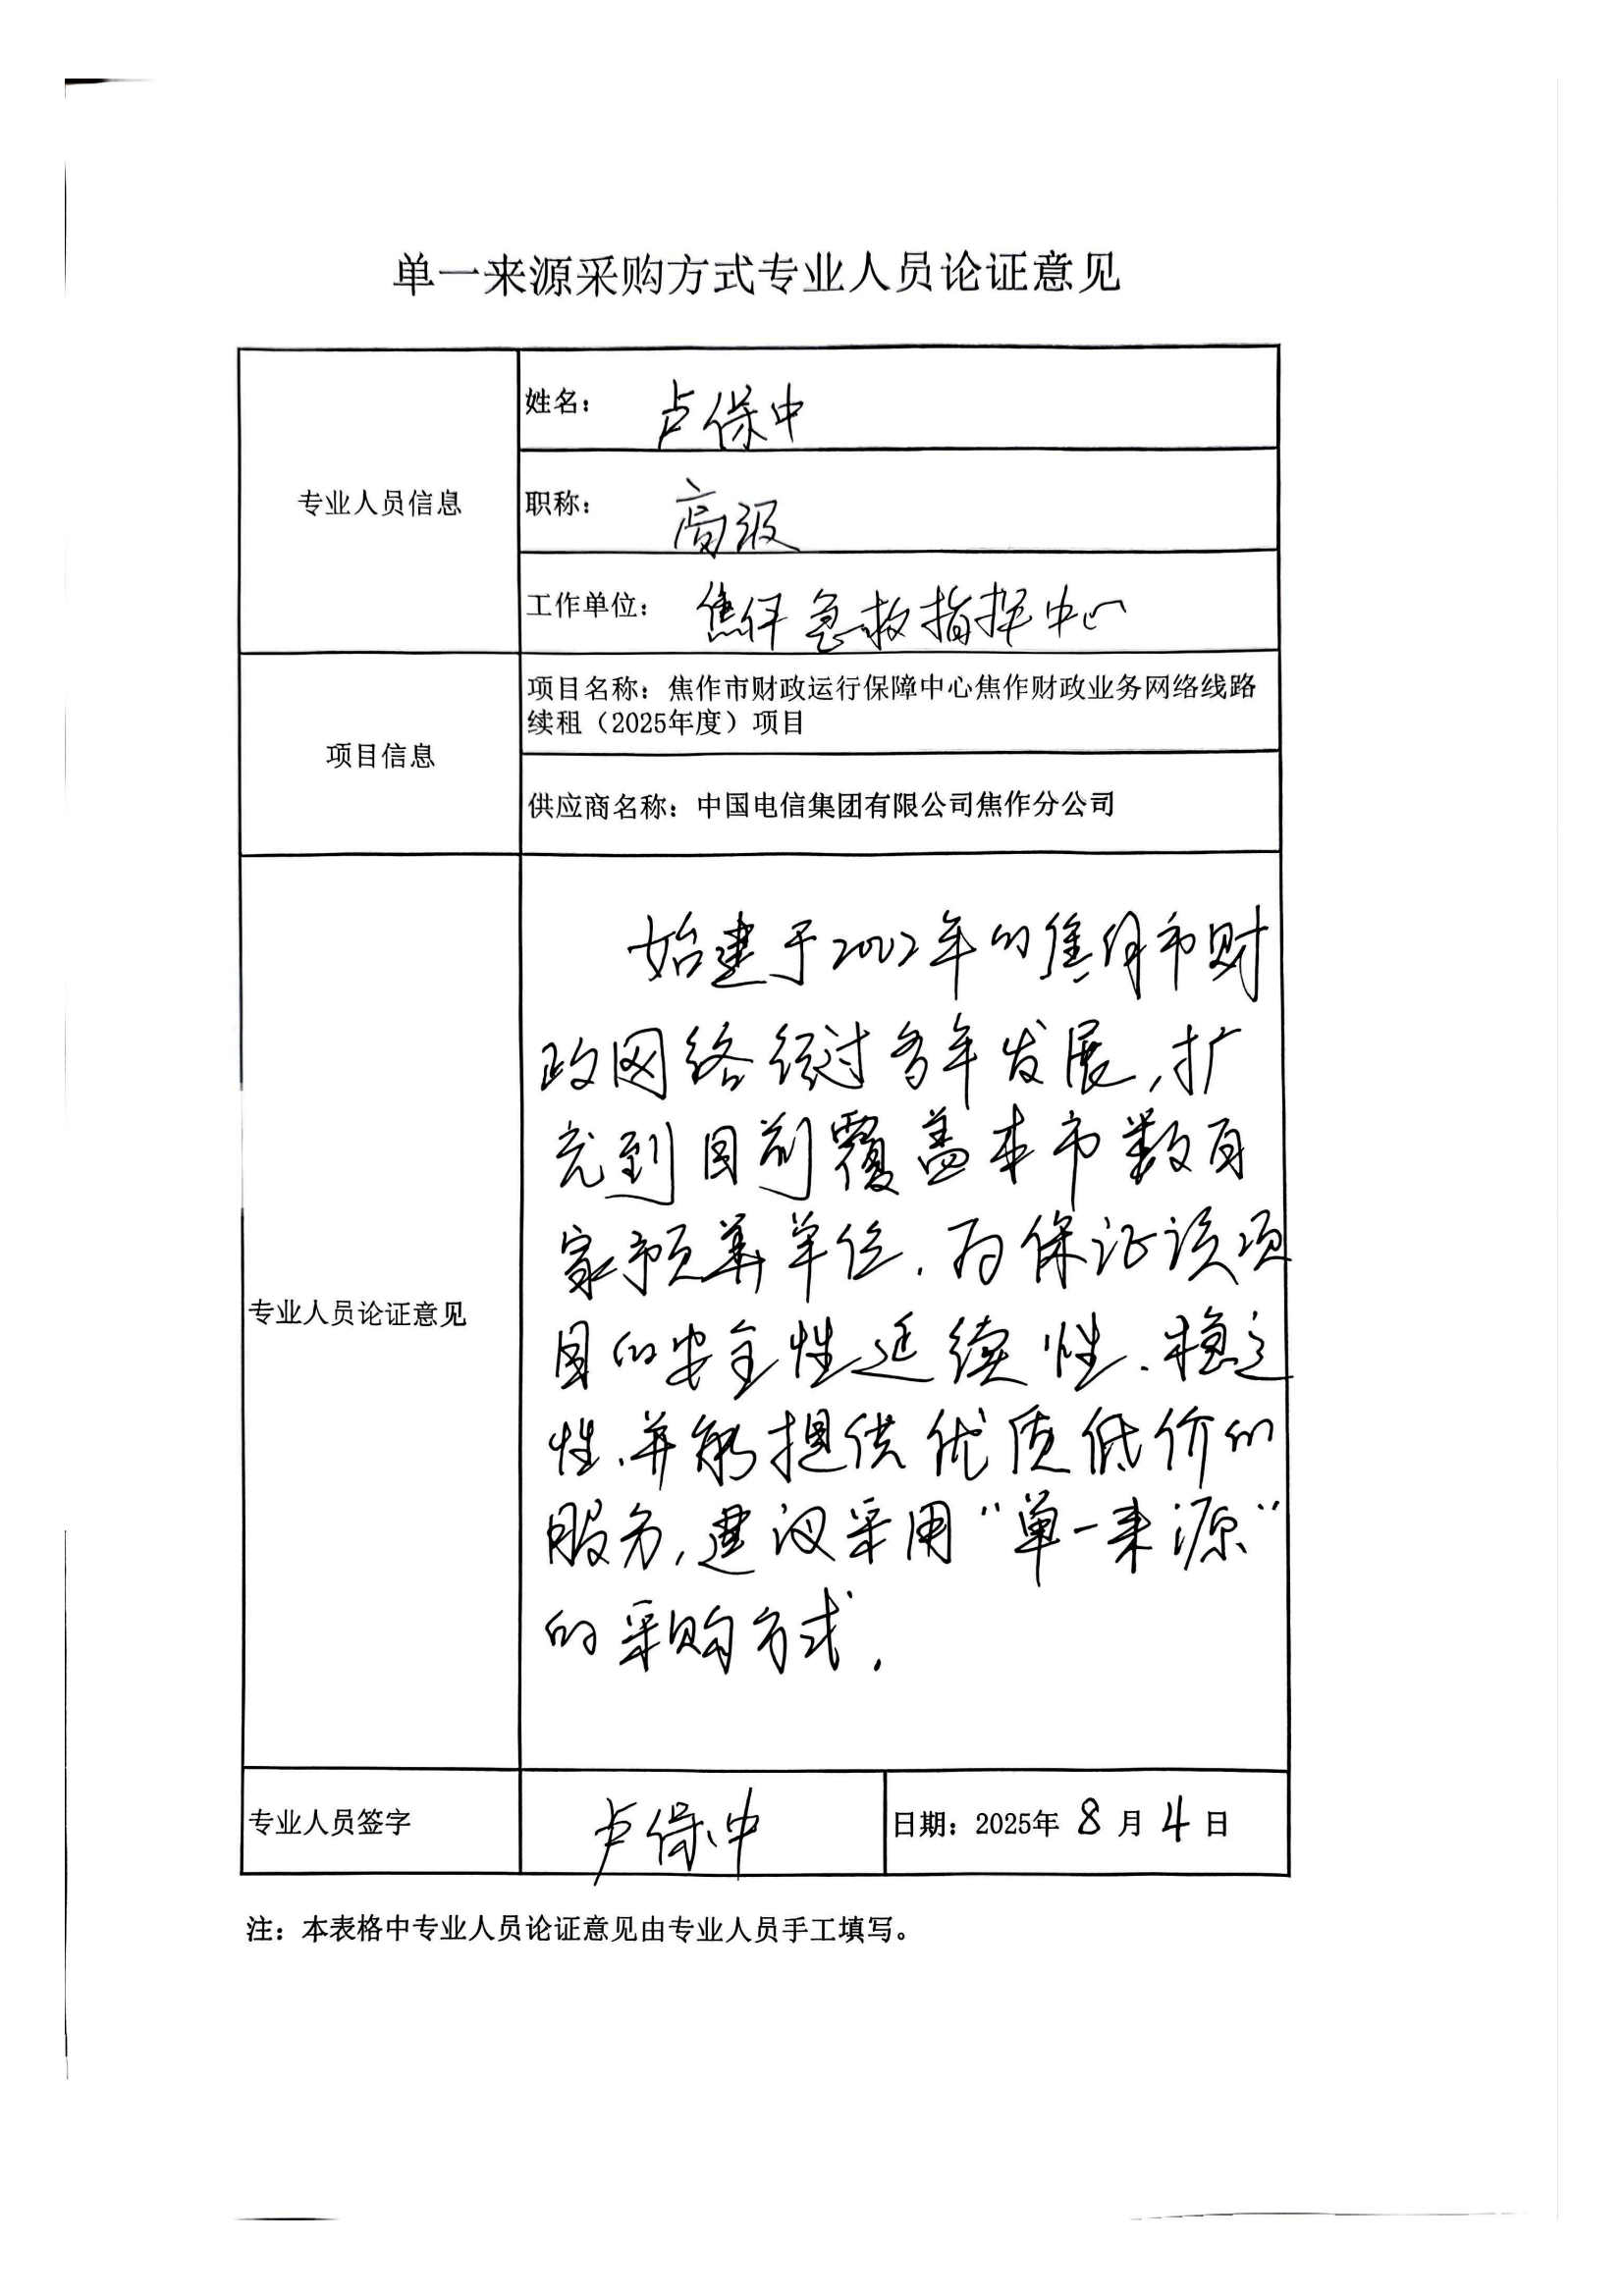 单一来源采购方式专业人员论证意见
专业人员信息
姓名： 卢保中
职称： 高级
工作单位： 焦作急救指挥中心
项目信息
项目名称：焦作市财政运行保障中心焦作财政业务网络线路
续租（2025年度）项目
供应商名称：中国电信集团有限公司焦作分公司
专业人员论证意见
始建于2002年的焦作市财
政网络经过多年发展，扩
充到目前覆盖本市数百
家预算单位．为保证该项
目的安全性延续性、稳定
性、并能提供优质低价的
服务，建议采用“单一来源”
的采购方式．
专业人员签字
卢保中
日期：2025年 8 月 4 日
注：本表格中专业人员论证意见由专业人员手工填写。